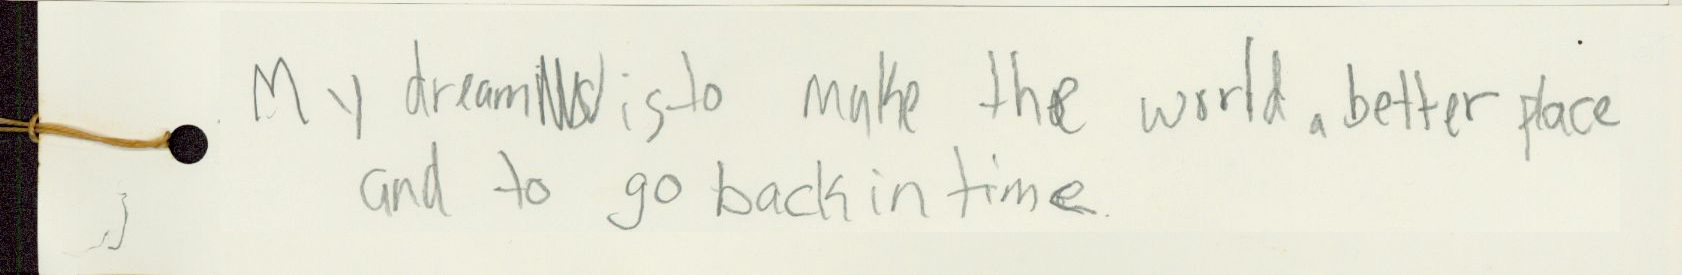 My dream is to make the world a better place
and to go back in time.